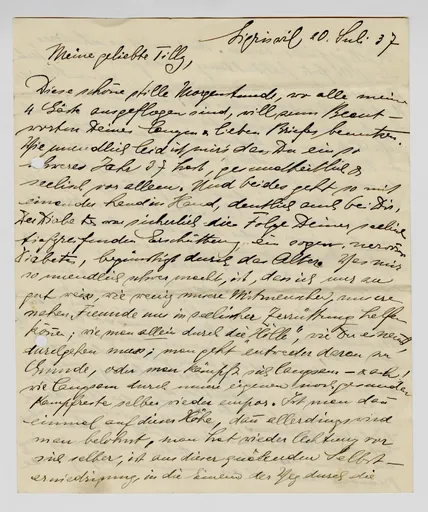 Sigriswil 20. Juli. 37
Meine geliebte Tilly,
Diese schöne stille Morgenstund, wo alle meine
4 Gäste ausgeflogen sind, will zum Beant-
worten Deines langen & lieben Briefes benutzen.
Wie unendlich leid ist mir das, Du ein so
Jahr 37 hast, gesundheitlich &
seelisch vor allem. Und beides geht so mit
einander Hand in Hand, deutlich auch bei Dir.
Der Diabetes, war sicherlich die Folge Deiner seelisch
tiefgreifenden Erschütterung, ein sogen. nervöser
Diabetes, begünstigt durch das Alter. Was mir
so unendlich schwer macht, ist, dass ich nur zu
gut weiss, wie wenig unsere Mitmenschen, unsere
nahen Freunde uns in seelischer Zerrüttung helfen
können, wie man allein durch die "Hölle", wie Du es nennst,
durchgehen muss; man geht entweder daran zu
Grunde, oder man kämpft sich langsam – ach!
wie langsam durch unsere eigenen noch gesunden
Kampfkräfte selber wieder empor. Ist man dann
einmal auf dieser Höhe, dann allerdings wird
man belohnt, man hat wieder Achtung vor
sich selber, ist aus dieser quälenden Selbst-
erniedrigung, in die einem der Weg durch die